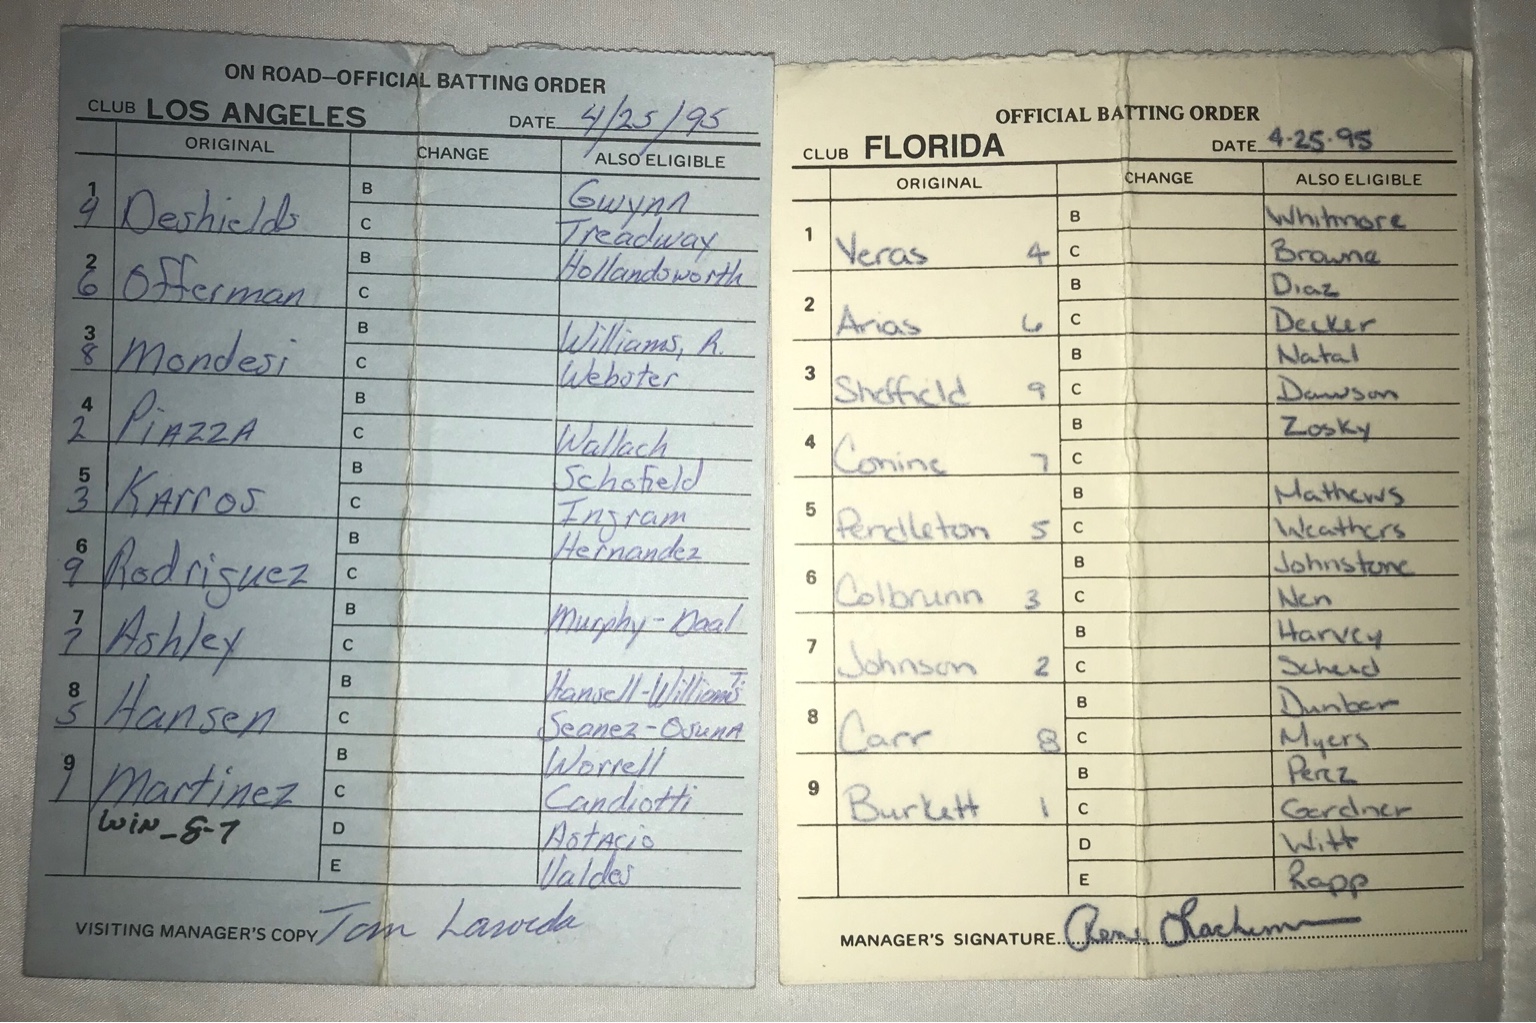 ON ROAD—OFFICIAL BATTING ORDER
CLUB LOS ANGELES DATE 4/25/95
ORIGINAL CHANGE ALSO ELIGIBLE
1 B Gwynn
4 Deshields C Treadway
2 B Hollandsworth
6 Offerman C
3 B Williams, R.
8 Mondesi C Webster
4 B
2 PiAZZA C Wallach
5 B Schofield
3 KArros C Ingram
6 B Hernandez
9 Rodriguez C
7 B Murphy-Daal
7 Ashley C
8 B Hansell-Williams T.
5 Hansen C Seanez-Osuna
9 B Worrell
1 Martinez C Candiotti
WiN_8-7 D Astacio
E Valdes
VISITING MANAGER'S COPY Tom Lasorda
OFFICIAL BATTING ORDER
CLUB FLORIDA DATE 4-25-95
ORIGINAL CHANGE ALSO ELIGIBLE
1 B Whitmore
Veras 4 C Browne
2 B Diaz
Arias 6 C Decker
3 B Natal
Sheffield 9 C Dawson
4 B Zosky
Conine 7 C
5 B Mathews
Pendleton 5 C Weathers
6 B Johnstone
Colbrunn 3 C Nen
7 B Harvey
Johnson 2 C Scheid
8 B Dunbar
Carr 8 C Myers
9 B Perez
Burkett 1 C Gardner
D Witt
E Rapp
MANAGER'S SIGNATURE Rene Lachemann